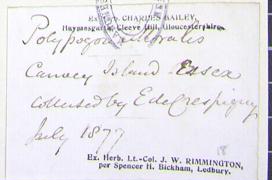 Ex Herb. CHARLES BAILEY,
Haymesgarth, Cleeve Hill, Gloucestershire.
Polypogon littoralis
Canvey Island Essex
collected by E de Crespigny
July 1877
18
Ex. Herb. Lt.-Col. J. W. RIMMINGTON,
per Spencer H. Bickham, Ledbury.